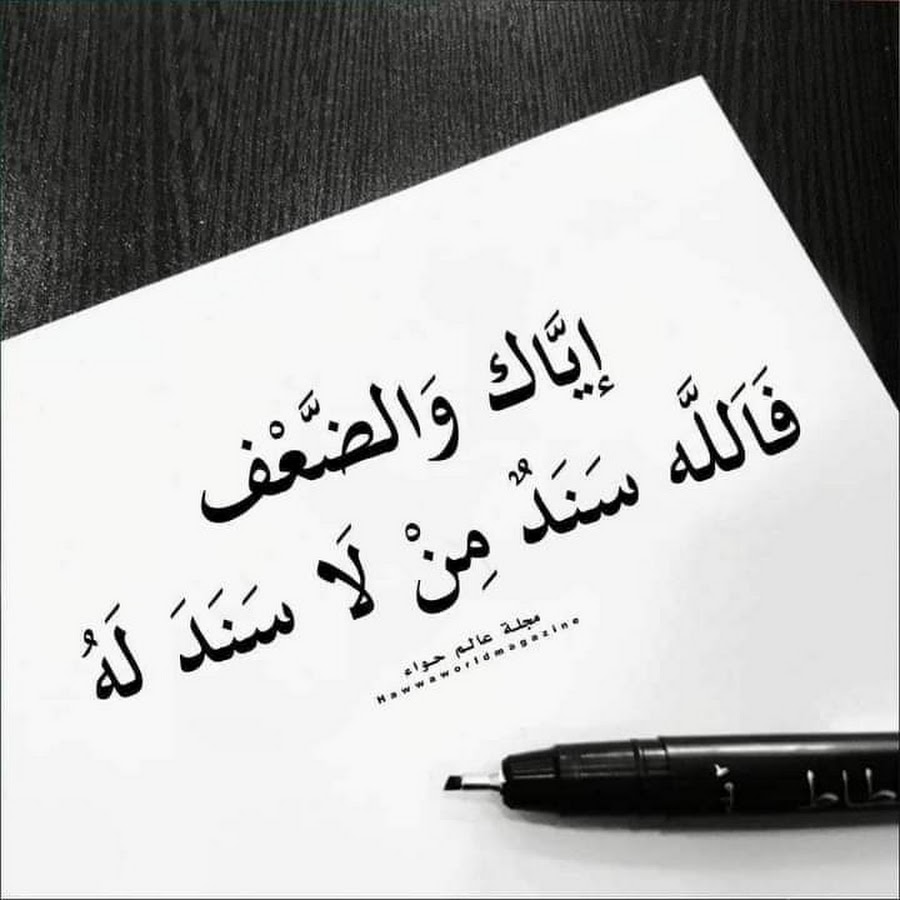 إيَّاك وَالضَّعْف
فَاَللَّه سَنَدٌ مِنْ لَا سَنَدَ لَهُ
مجلة عالم حواء
Hawwaworldmagazine
طاط أ